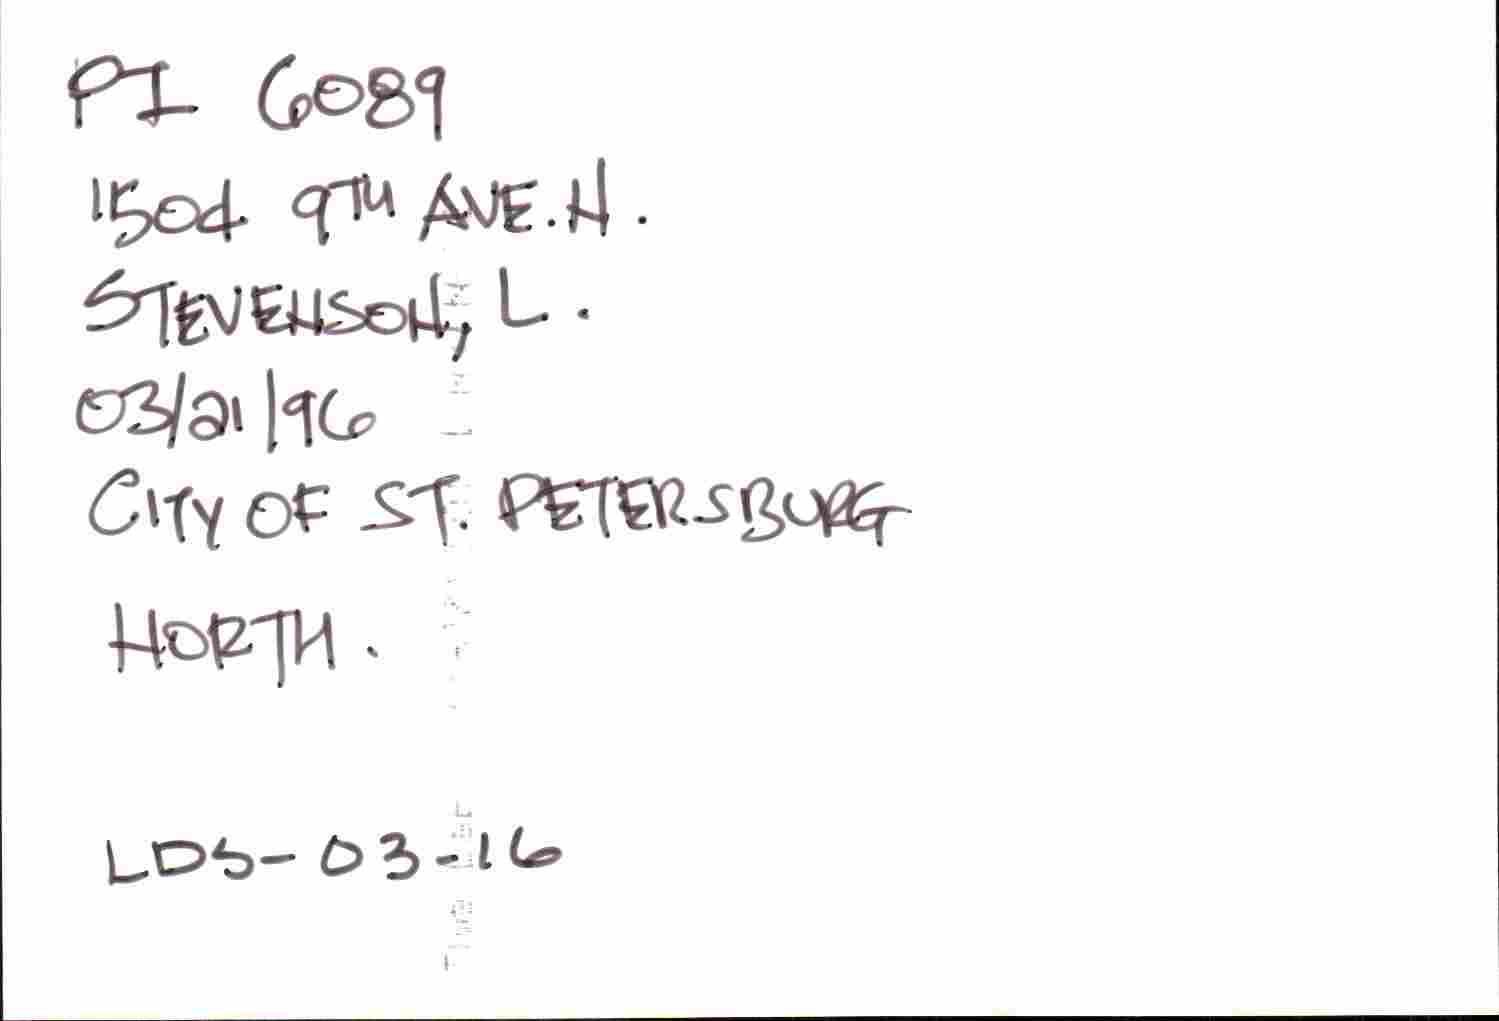 PI 6089
1504 9TH AVE. N.
STEVENSON, L.
03/21/96
CITY OF ST. PETERSBURG
NORTH.
LDS-03-16